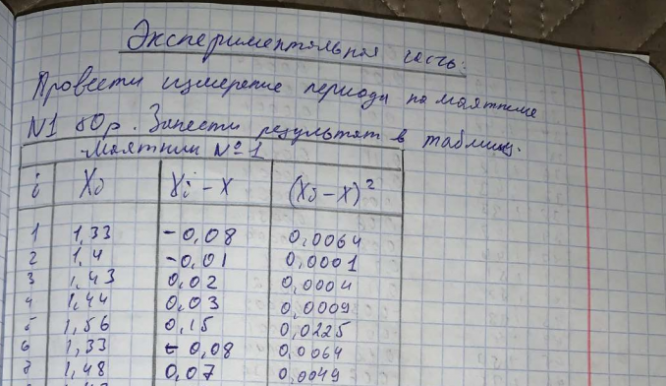 Экспериментальная часть.
Провести измерение периода на маятнике
N1 80р. Занести результат в таблицу.
Маятник №1
i Xi Xi - X (Xi - X)²
1 1,33 -0,08 0,0064
2 1,4 -0,01 0,0001
3 1,43 0,02 0,0004
4 1,44 0,03 0,0009
5 1,56 0,15 0,0225
6 1,33 -0,08 0,0064
7 1,48 0,07 0,0049